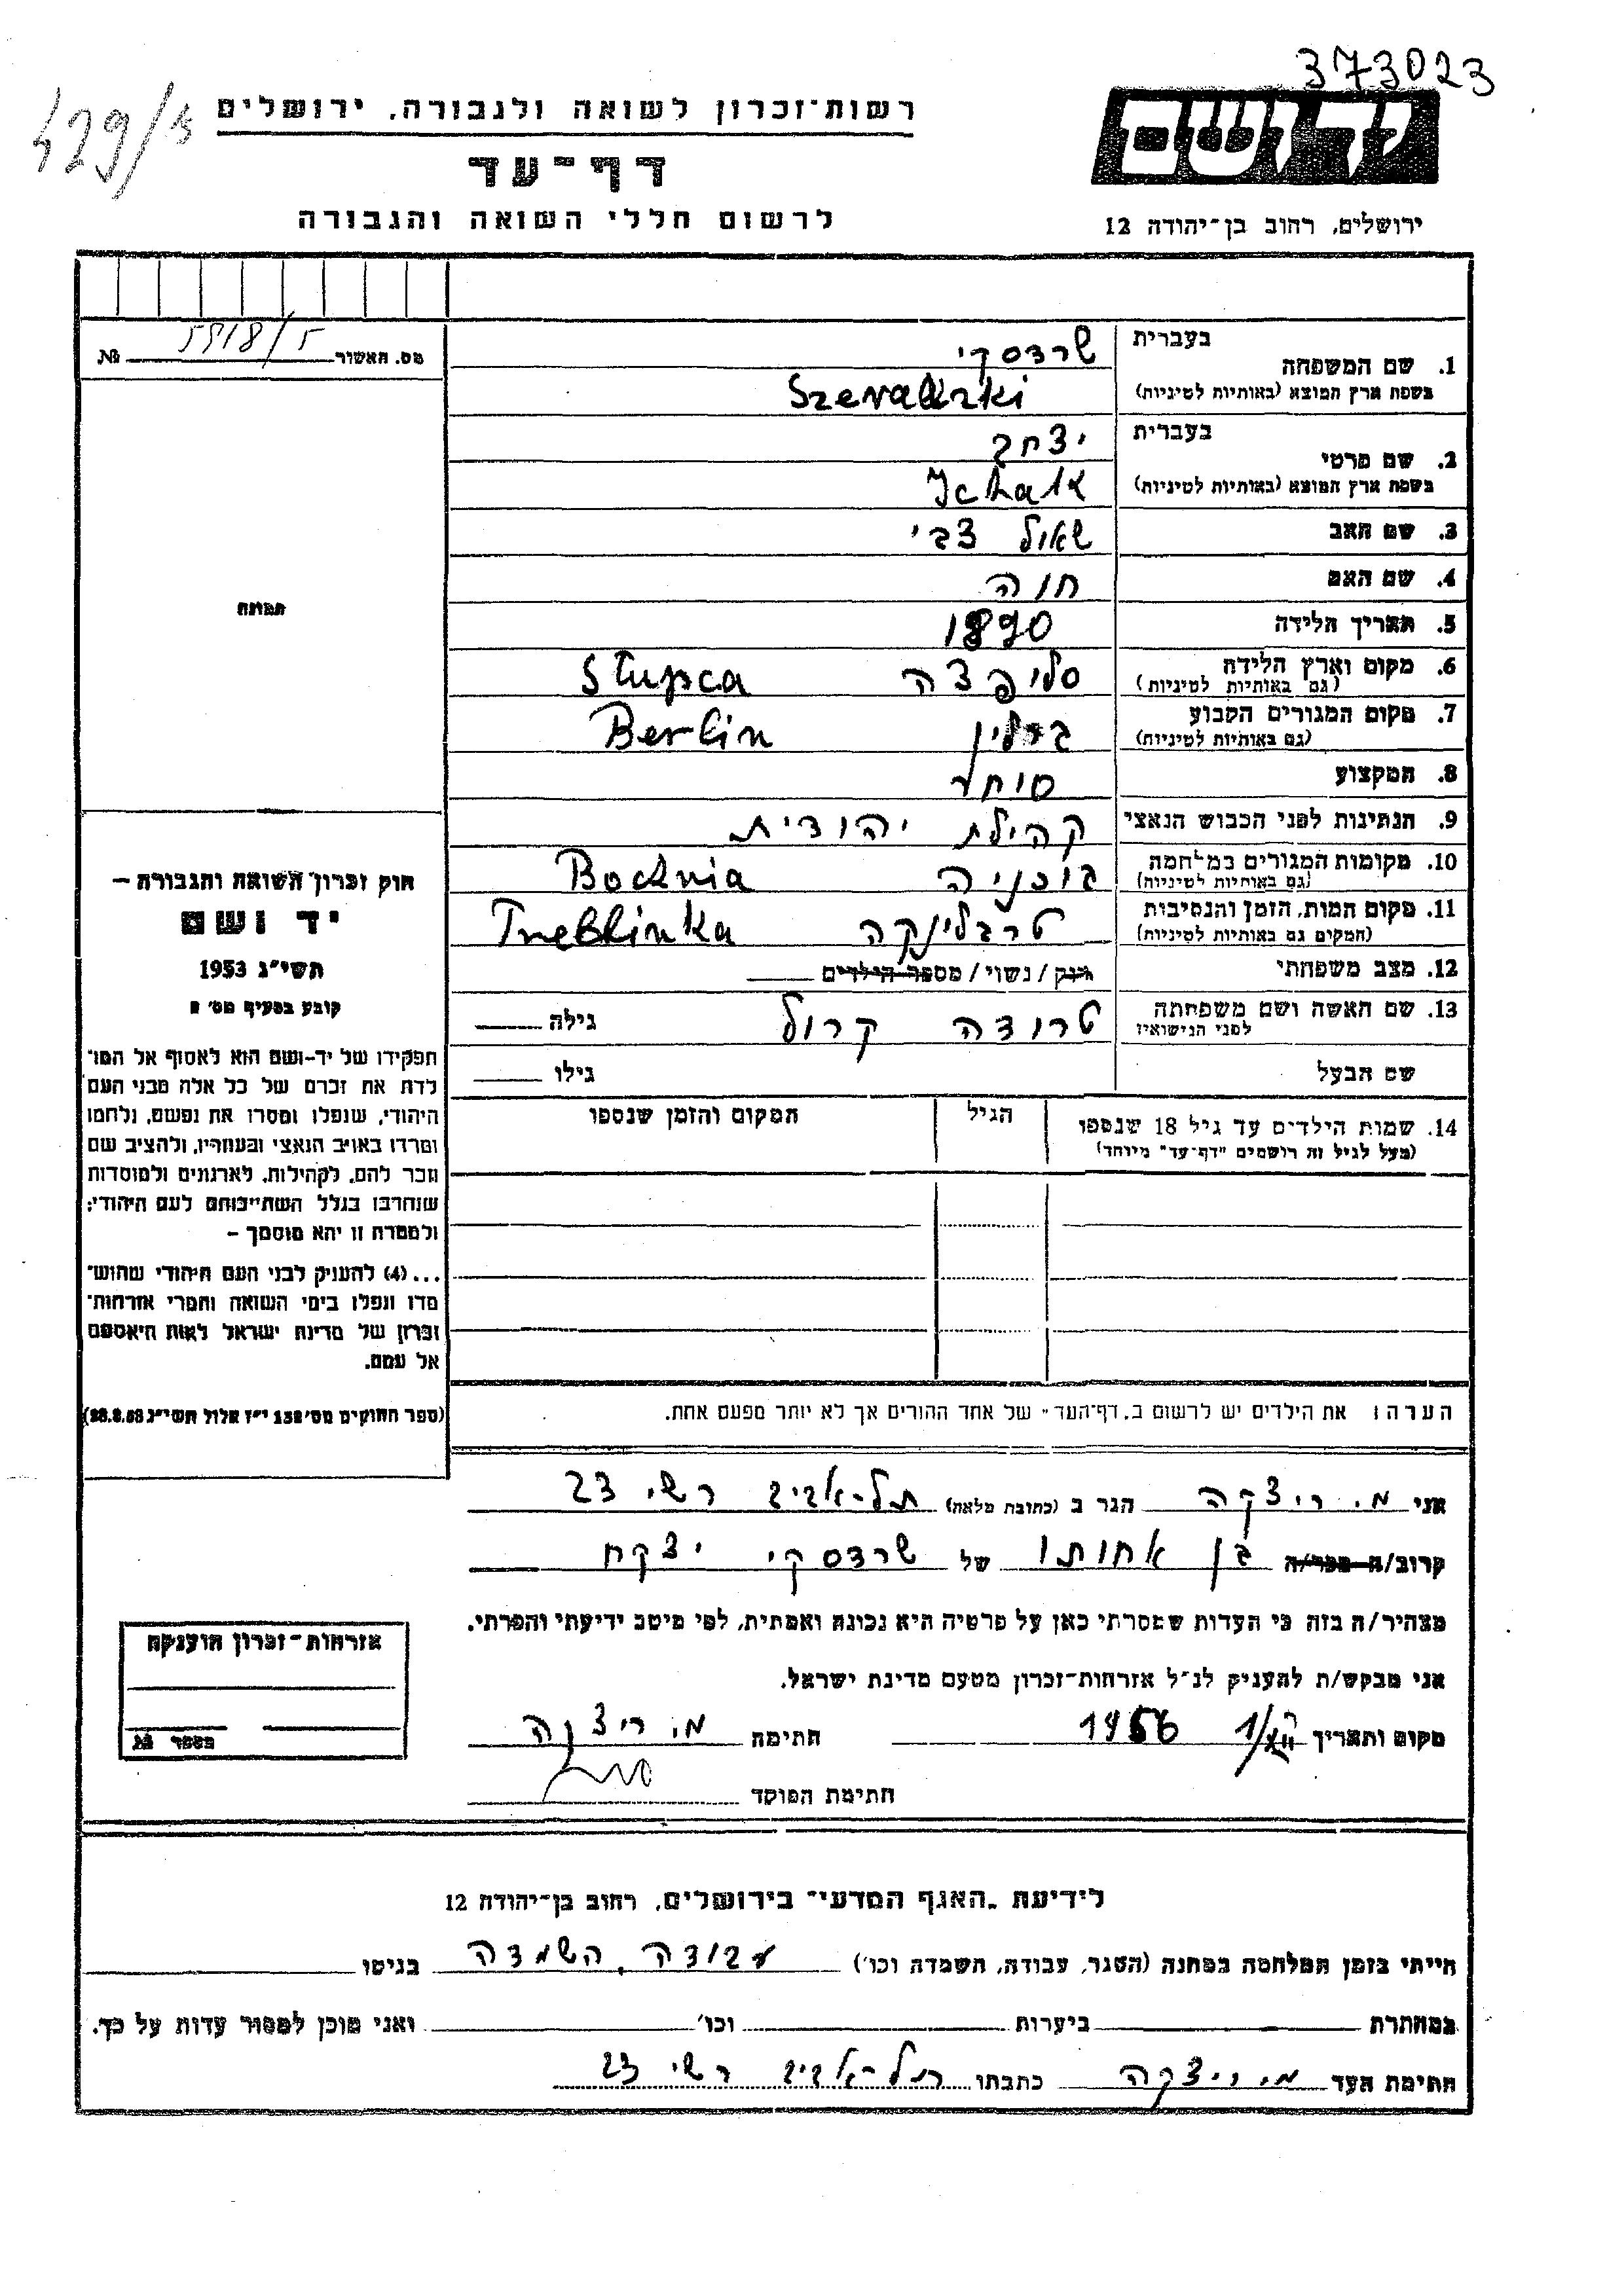 373023
429/5
רשות־זכרון לשואה ולגבורה, ירושלים
יד ושם
דף־עד
לרשום חללי השואה והגבורה
ירושלים, רחוב בן־יהודה 12
מס. האשור № 5918/5
תמונה
1. שם המשפחה
בעברית שרדסקי
בשפת ארץ המוצא (באותיות לטיניות)
2. שם פרטי
בעברית יצחק
בשפת ארץ המוצא (באותיות לטיניות) Ichak
3. שם האב שאול צבי
4. שם האם חנה
5. תאריך הלידה 1890
6. מקום וארץ הלידה סלופצה Słupca
(גם באותיות לטיניות)
7. מקום המגורים הקבוע ברלין Berlin
(גם באותיות לטיניות)
8. המקצוע סוחר
9. הנתינות לפני הכבוש הנאצי קהילת יהודית
10. מקומות המגורים במלחמה בוכניה Bochnia
(גם באותיות לטיניות)
11. מקום המות, הזמן והנסיבות טרבלינקה Treblinka
(המקום גם באותיות לטיניות)
12. מצב משפחתי רווק / נשוי / מספר הילדים
13. שם האשה ושם משפחתה טרודה קרול גילה
לפני הנישואין
שם הבעל גילו
14. שמות הילדים עד גיל 18 שנספו הגיל המקום והזמן שנספו
(מעל לגיל זה רושמים "דף־עד" מיוחד)
חוק זכרון השואה והגבורה —
יד ושם
תשי"ג 1953
קובע בסעיף מס׳
תפקידו של יד-ושם הוא לאסוף אל המו־
לדת את זכרם של כל אלה מבני העם
היהודי, שנפלו ומסרו את נפשם, נלחמו
ומרדו באויב הנאצי ובעוזריו, ולהציב שם
וזכר להם, לקהילות, לארגונים ולמוסדות
שנחרבו בגלל השתייכותם לעם היהודי;
ולמטרה זו יהא מוסמך —
...(4) להעניק לבני העם היהודי שהוש־
מדו ונפלו בימי השואה והמרי אזרחות־
זכרון של מדינת ישראל לאות היאספם
אל עמם.
(ספר החוקים מס׳ 132 י"ז אלול תשי"ג 28.8.53)
הערה: את הילדים יש לרשום ב„דף־העד" של אחד ההורים אך לא יותר מפעם אחת.
אני מ. ריצקה הגר ב (כתובת מלאה) תל-אביב רשי 23
קרוב/ה מכר/ה בן אחותו של שרדסקי יצקח
מצהיר/ה בזה כי העדות שמסרתי כאן על פרטיה היא נכונה ואמתית, לפי מיטב ידיעתי והכרתי.
אני מבקש/ת להעניק לנ"ל אזרחות־זכרון מטעם מדינת ישראל.
מקום ותאריך 1956 חתימה מ. ריצקה
חתימת הפוקד
אזרחות־זכרון הוענקה
מספר №
לידיעת „האגף המדעי" בירושלים, רחוב בן־יהודה 12
הייתי בזמן המלחמה במחנה (הסגר, עבודה, השמדה וכו׳) עבודה, השמדה בגיטו
במחתרת ביערות וכו׳ ואני מוכן למסור עדות על כך.
חתימת העד מ. ריצקה כתבתו תל-אביב רשי 23